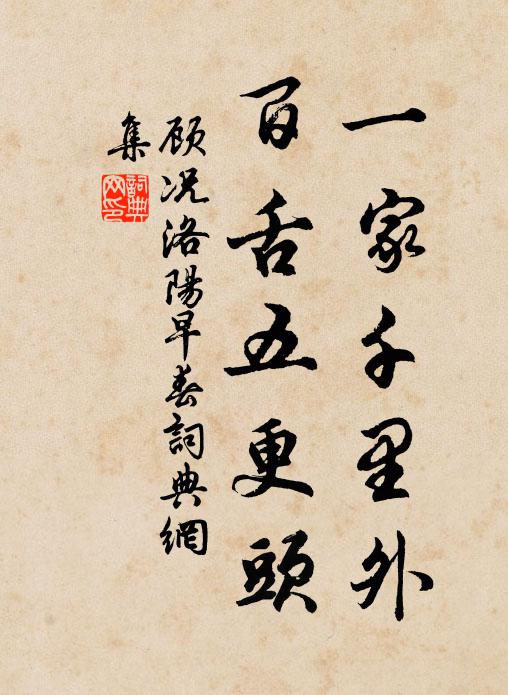 一家千里外
百舌五更頭
顾况洛陽早春詞典網
集
詞典
网印